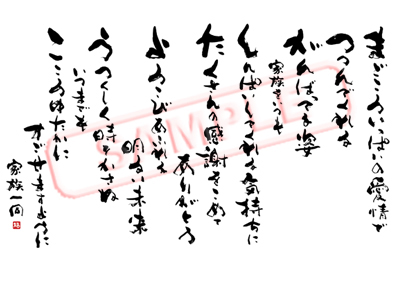 まごころいっぱいの愛情で
つつんでくれた
がんばってる姿
家族をつつむ
くんぱしてくれる気持ちに
たくさんの感謝をこめて
ありがとう
よろこびあふれる
明るい未来
うつくしく時をかさね
いつまでも
こころゆたかに
すごせますように
家族一同
SAMPLE